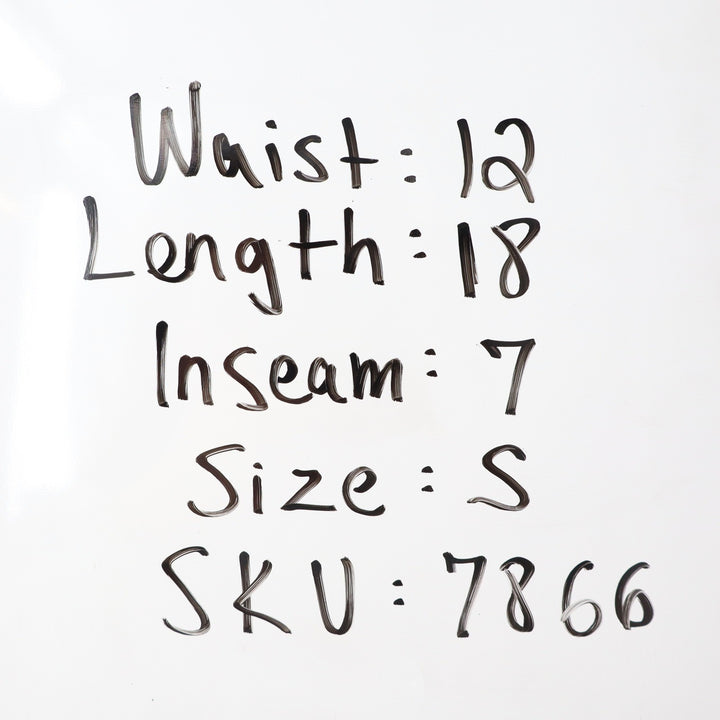 Waist: 12
Length: 18
Inseam: 7
Size: S
SKU: 7866